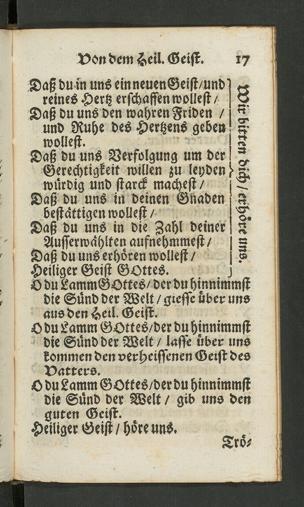 Von dem Heil. Geist. 17
Daß du in uns ein neuen Geist/und
reines Hertz erschaffen wollest /
Daß du uns den wahren Friden /
und Ruhe des Hertzens geben
wollest.
Daß du uns Verfolgung um der
Gerechtigkeit willen zu leyden
würdig und starck machest /
Daß du uns in deinen Gnaden
bestättigen wollest /
Daß du uns in die Zahl deiner
Ausserwählten aufnehmmest /
Daß du uns erhören wollest /
Heiliger Geist GOttes.
Wir bitten dich / erhöre uns.
O du Lamm GOttes/der du hinnimmst
die Sünd der Welt / giesse über uns
aus den Heil. Geist.
O du Lamm GOttes/der du hinnimmst
die Sünd der Welt / lasse über uns
kommen den verheissenen Geist des
Vatters.
O du Lamm GOttes/der du hinnimmst
die Sünd der Welt / gib uns den
guten Geist.
Heiliger Geist / höre uns.
Trö-